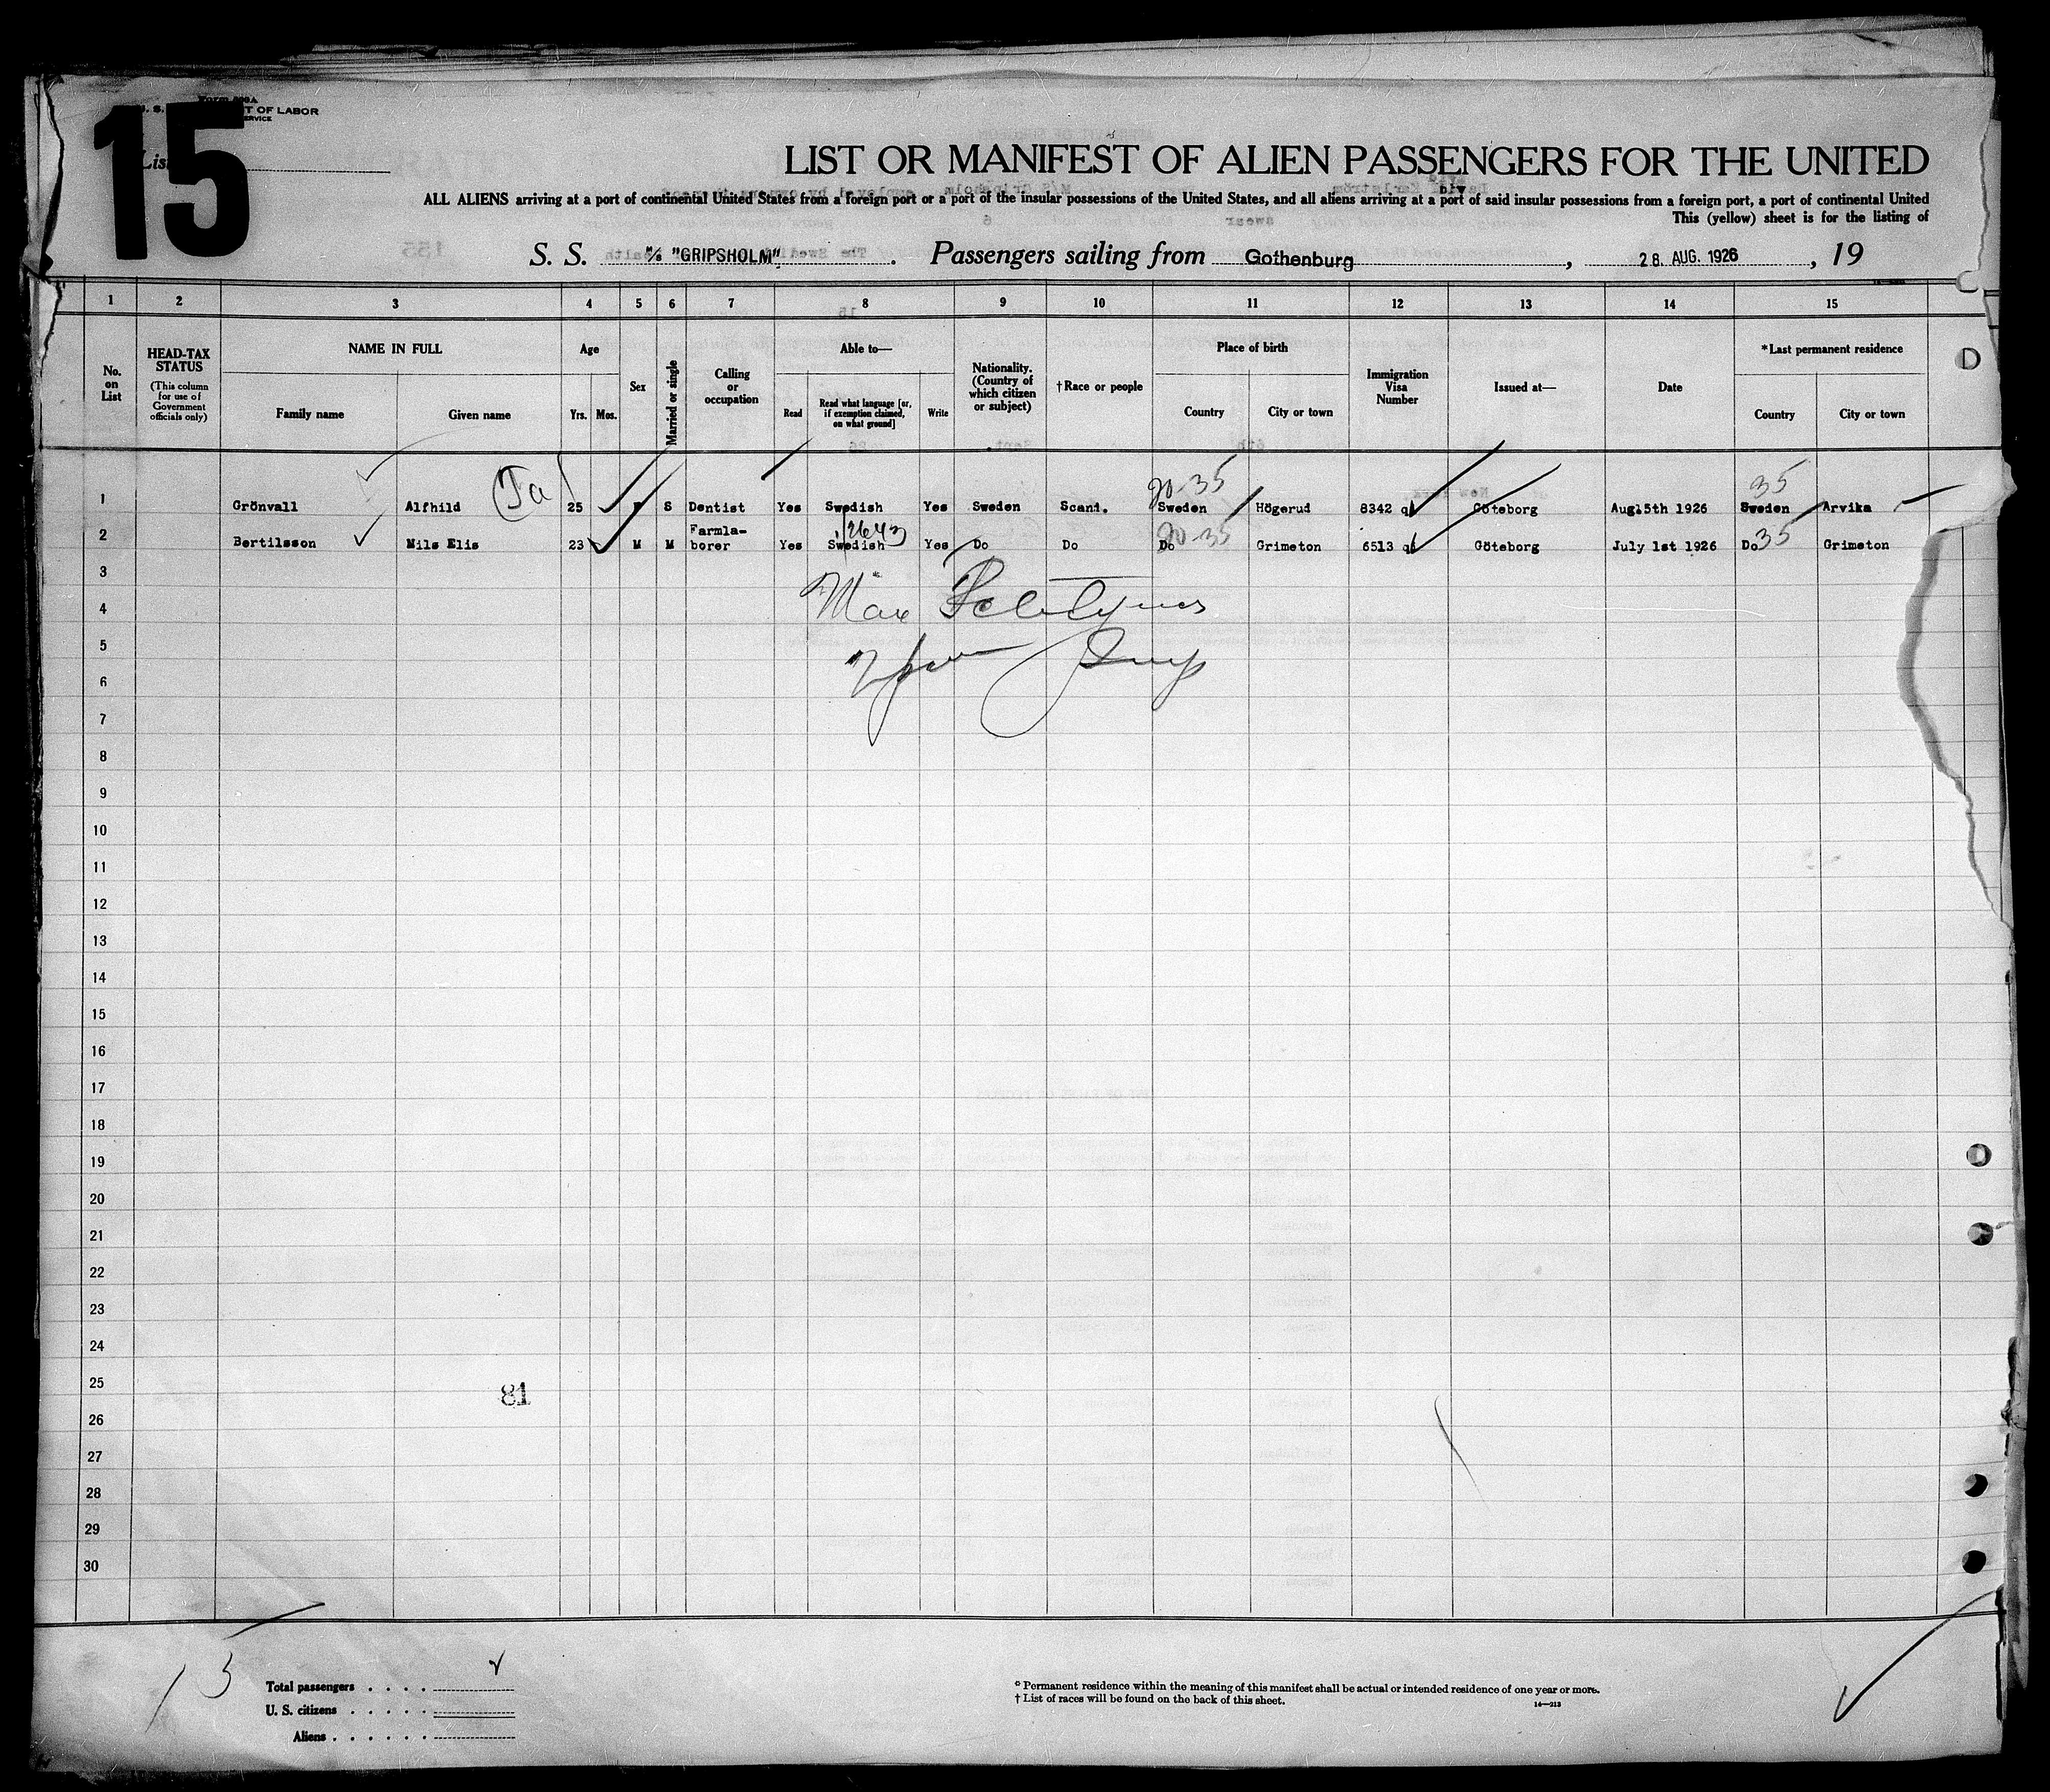 15
Form
U. S. DEPARTMENT OF LABOR
SERVICE
List
LIST OR MANIFEST OF ALIEN PASSENGERS FOR THE UNITED
ALL ALIENS arriving at a port of continental United States from a foreign port or a port of the insular possessions of the United States, and all aliens arriving at a port of said insular possessions from a foreign port, a port of continental United
This (yellow) sheet is for the listing of
S. S. M/S "GRIPSHOLM" . Passengers sailing from Gothenburg , 28. AUG. 1926 , 19
1 2 3 4 5 6 7 8 9 10 11 12 13 14 15
No. on List
HEAD-TAX STATUS (This column for use of Government officials only)
NAME IN FULL
Family name Given name
Age
Yrs. Mos.
Sex
Married or single
Calling or occupation
Able to—
Read Read what language [or, if exemption claimed, on what ground] Write
Nationality. (Country of which citizen or subject)
†Race or people
Place of birth
Country City or town
Immigration Visa Number
Issued at—
Date
*Last permanent residence
Country City or town
20-35 35
1 Grönvall Alfhild 25 S Dentist Yes Swedish Yes Sweden Scand. Sweden Högerud 8342 Göteborg Aug15th 1926 Sweden Arvika
2 Bertilsson Nils Elis 23 M M Farmla-borer Yes Swedish Yes Do Do Do Grimeton 6513 Göteborg July 1st 1926 Do Grimeton
20-35 35
3
Max
4
5
Insp
6
7
8
9
10
11
12
13
14
15
16
17
18
19
20
21
22
23
24
25
81
26
27
28
29
30
15
Total passengers . . . .
U. S. citizens . . . . .
Aliens . . . . . .
* Permanent residence within the meaning of this manifest shall be actual or intended residence of one year or more.
† List of races will be found on the back of this sheet.
14—213